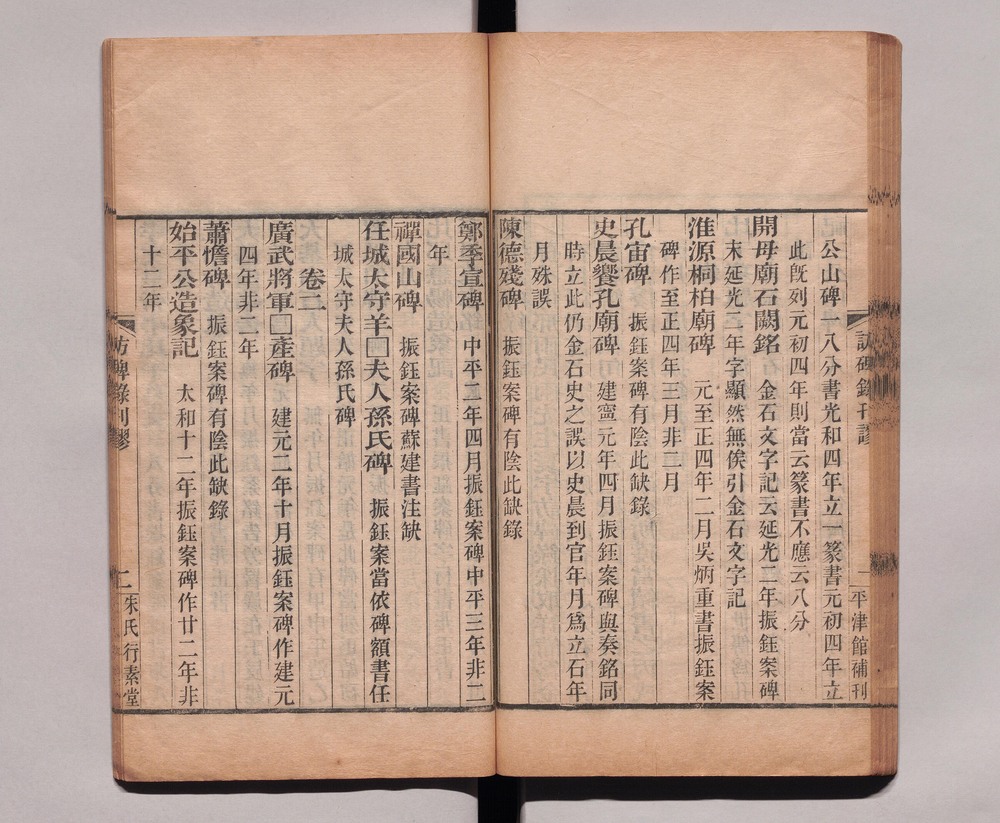 公山碑一八分書光和四年立一篆書元初四年立
此旣列元初四年則當云篆書不應云八分
開母廟石闕銘 金石文字記云延光二年振鈺案碑
末延光二年字顯然無俟引金石文字記
淮源桐柏廟碑 元至正四年二月吳炳重書振鈺案
碑作至正四年三月非二月
孔宙碑 振鈺案碑有陰此缺錄
史晨饗孔廟碑 建寧元年四月振鈺案碑與奏銘同
時立此仍金石史之誤以史晨到官年月爲立石年
月殊誤
陳德殘碑 振鈺案碑有陰此缺錄
平津館補刊
鄭季宣碑 中平二年四月振鈺案碑中平三年非二
年
禪國山碑 振鈺案碑蘇建書注缺
任城太守羊□夫人孫氏碑 振鈺案當依碑額書任
城太守夫人孫氏碑
卷二
廣武將軍□產碑 建元二年十月振鈺案碑作建元
四年非二年
蕭憺碑 振鈺案碑有陰此缺錄
始平公造象記 太和十二年振鈺案碑作廿二年非
十二年
訪碑錄刊謬 二 朱氏行素堂